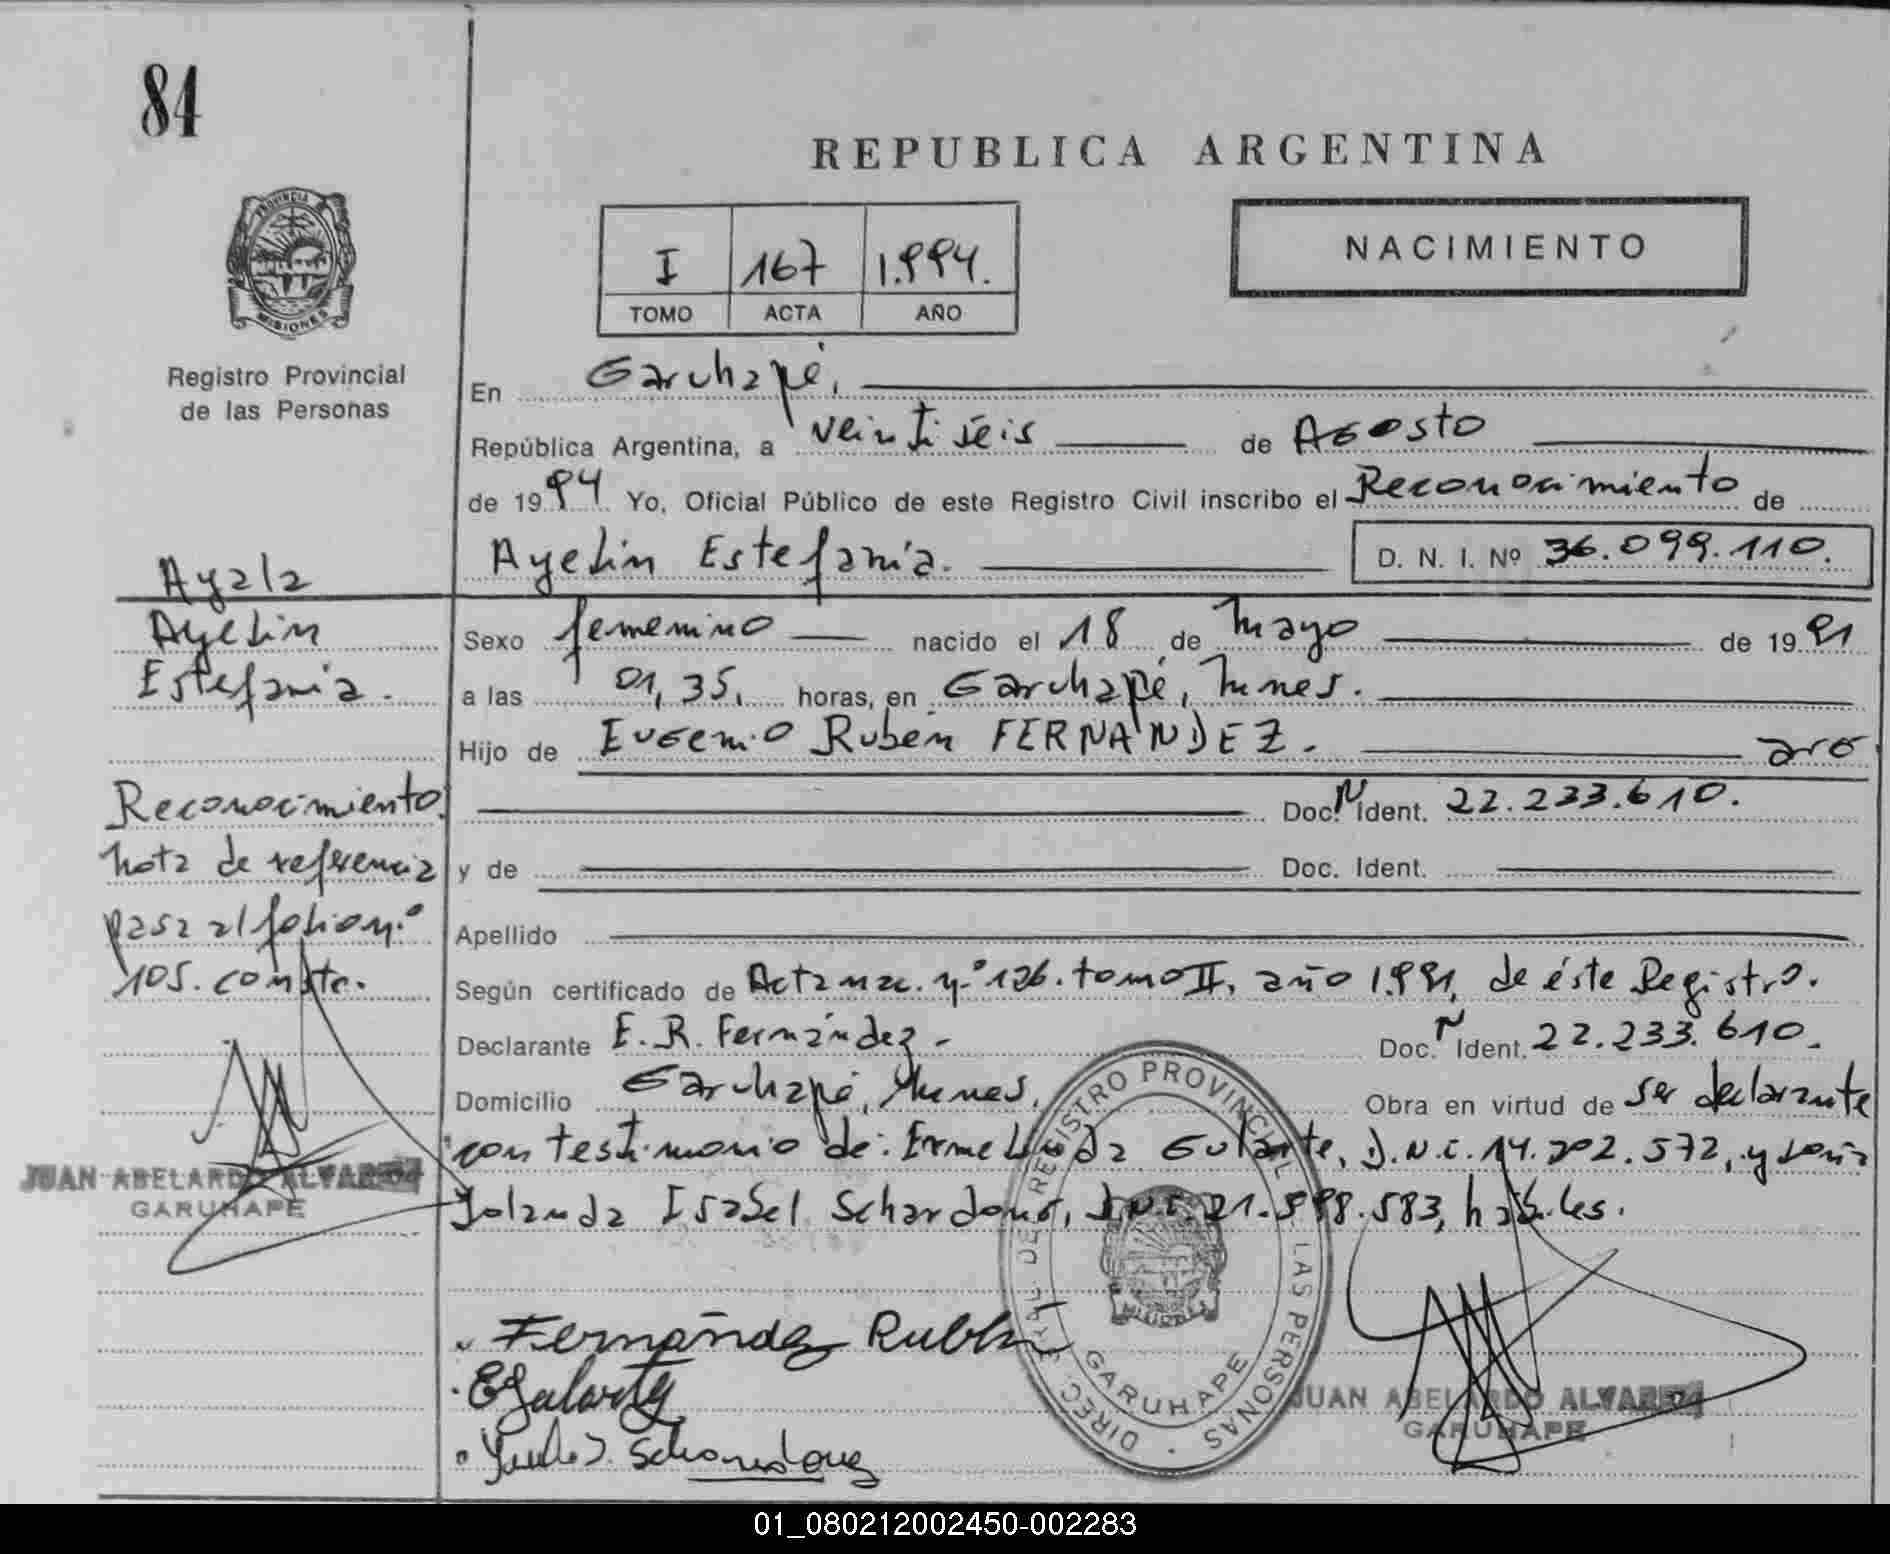 84
REPUBLICA ARGENTINA
PROVINCIA
MISIONES
Registro Provincial
de las Personas
I 167 1.994.
TOMO ACTA AÑO
NACIMIENTO
En Garuhapé,
República Argentina, a veintiséis de Agosto
de 1994 Yo, Oficial Público de este Registro Civil inscribo el Reconocimiento de
Ayelin Estefanía. D. N. I. Nº 36.099.110.
Ayala
Ayelin
Estefania.
Sexo femenino nacido el 18 de Mayo de 1991
a las 01,35, horas, en Garuhapé, Mnes.
Hijo de Eugenio Rubén FERNANDEZ. arg
Doc. N Ident. 22.233.610.
y de Doc. Ident.
Apellido
Reconocimiento.
nota de referencia
pasa al folio nº
105. conste.
Según certificado de Acta nac. nº 126. tomo II, año 1.991, de éste Registro.
Declarante E. R. Fernández - Doc. N Ident. 22.233.610.
Domicilio Garuhapé, Mnes. Obra en virtud de ser declarante
con testimonio de: Ermelinda D.N.I. 14.202.572, y doña
Yolanda Isabel D.N.I. 21. .583, hábiles.
JUAN ABELARDO ALVAREZ
GARUHAPE
Fernández Rubén
DIREC. GRAL. DE REGISTRO PROVINCIAL DE LAS PERSONAS
GARUHAPE
JUAN ABELARDO ALVAREZ
GARUHAPE
01_080212002450-002283